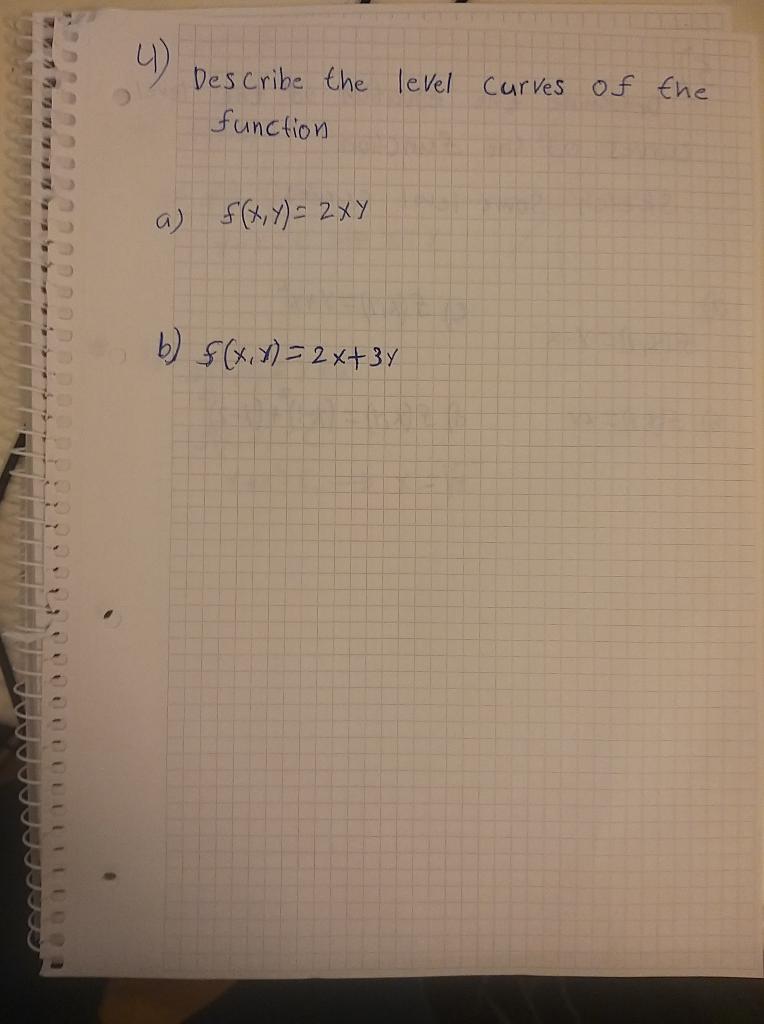 4) Describe the level curves of the
function
a) f(x,y)= 2xy
b) f(x,y)=2x+3y